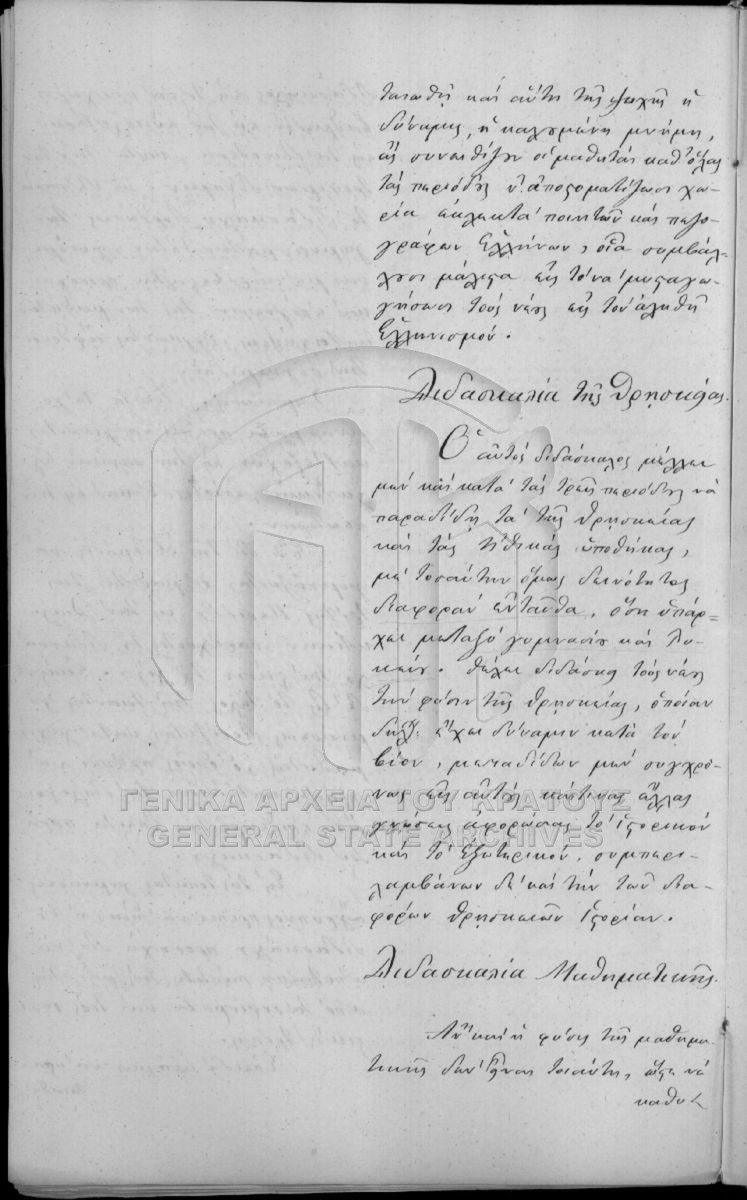 τασθῇ καὶ αὕτη τῆς ψυχῆς ἡ
δύναμις, ἡ καλουμένη μνήμη,
ἂς συνειθίζουν οἱ μαθηταὶ καθ' ὅλας
τὰς περιόδους ν' ἀποστοματίζωσι χω-
ρία ἐκλεκτὰ ποιητῶν καὶ πεζο-
γράφων Ἑλλήνων, οἷα συμβάλ-
λουσι μάλιστα εἰς τὸ νὰ μυσταγω-
γήσωσι τοὺς νέους εἰς τὸν ἀληθῆ
Ἑλληνισμόν.
Διδασκαλία τῆς Θρησκείας.
Ὁ αὐτὸς διδάσκαλος μέλλει
μὲν καὶ κατὰ τὰς τρεῖς περιόδους νὰ
παραδίδῃ τὰ τῆς θρησκείας
καὶ τὰς ἠθικὰς ὑποθήκας,
μὲ τοσαύτην ὅμως δεινότητος
διαφορὰν ἐνταῦθα, ὅση ὑπάρ=
χει μεταξὺ γυμνασίου καὶ Λυ-
κείου. Θέλει διδάσκει τοὺς νέους
τὴν φύσιν τῆς θρησκείας, ὁποίαν
δηλ. ἔχει δύναμιν κατὰ τὸν
βίον, μεταδίδων μὲν συγχρό-
νως εἰς αὐτοὺς καί τινας ἄλλας
γνώσεις ἀφορώσας τὸ ἱστορικὸν
καὶ τὸ ἐξωτερικὸν, συμπερι-
λαμβάνων δὲ καὶ τὴν τῶν δια-
φόρων θρησκειῶν ἱστορίαν.
Διδασκαλία Μαθηματικῆς.
Ἂν καὶ ἡ φύσις τῆς μαθημα-
τικῆς δὲν εἶναι τοιαύτη, ὥστε νὰ
καθυ
ΓΕΝΙΚΑ ΑΡΧΕΙΑ ΤΟΥ ΚΡΑΤΟΥΣ
GENERAL STATE ARCHIVES